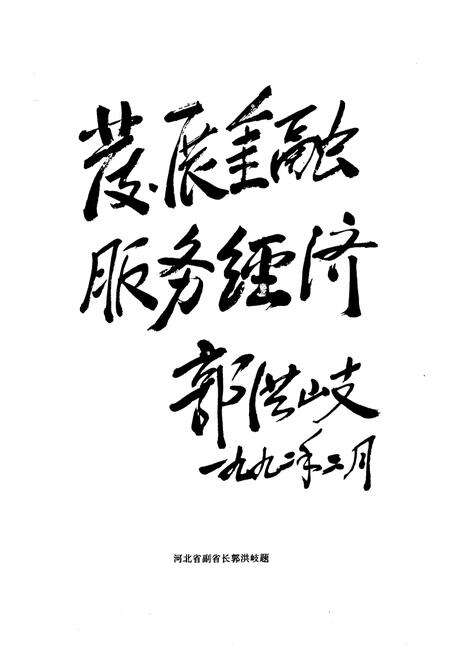 发展金融
服务经济
郭洪岐
一九九二年二月
河北省副省长郭洪岐题